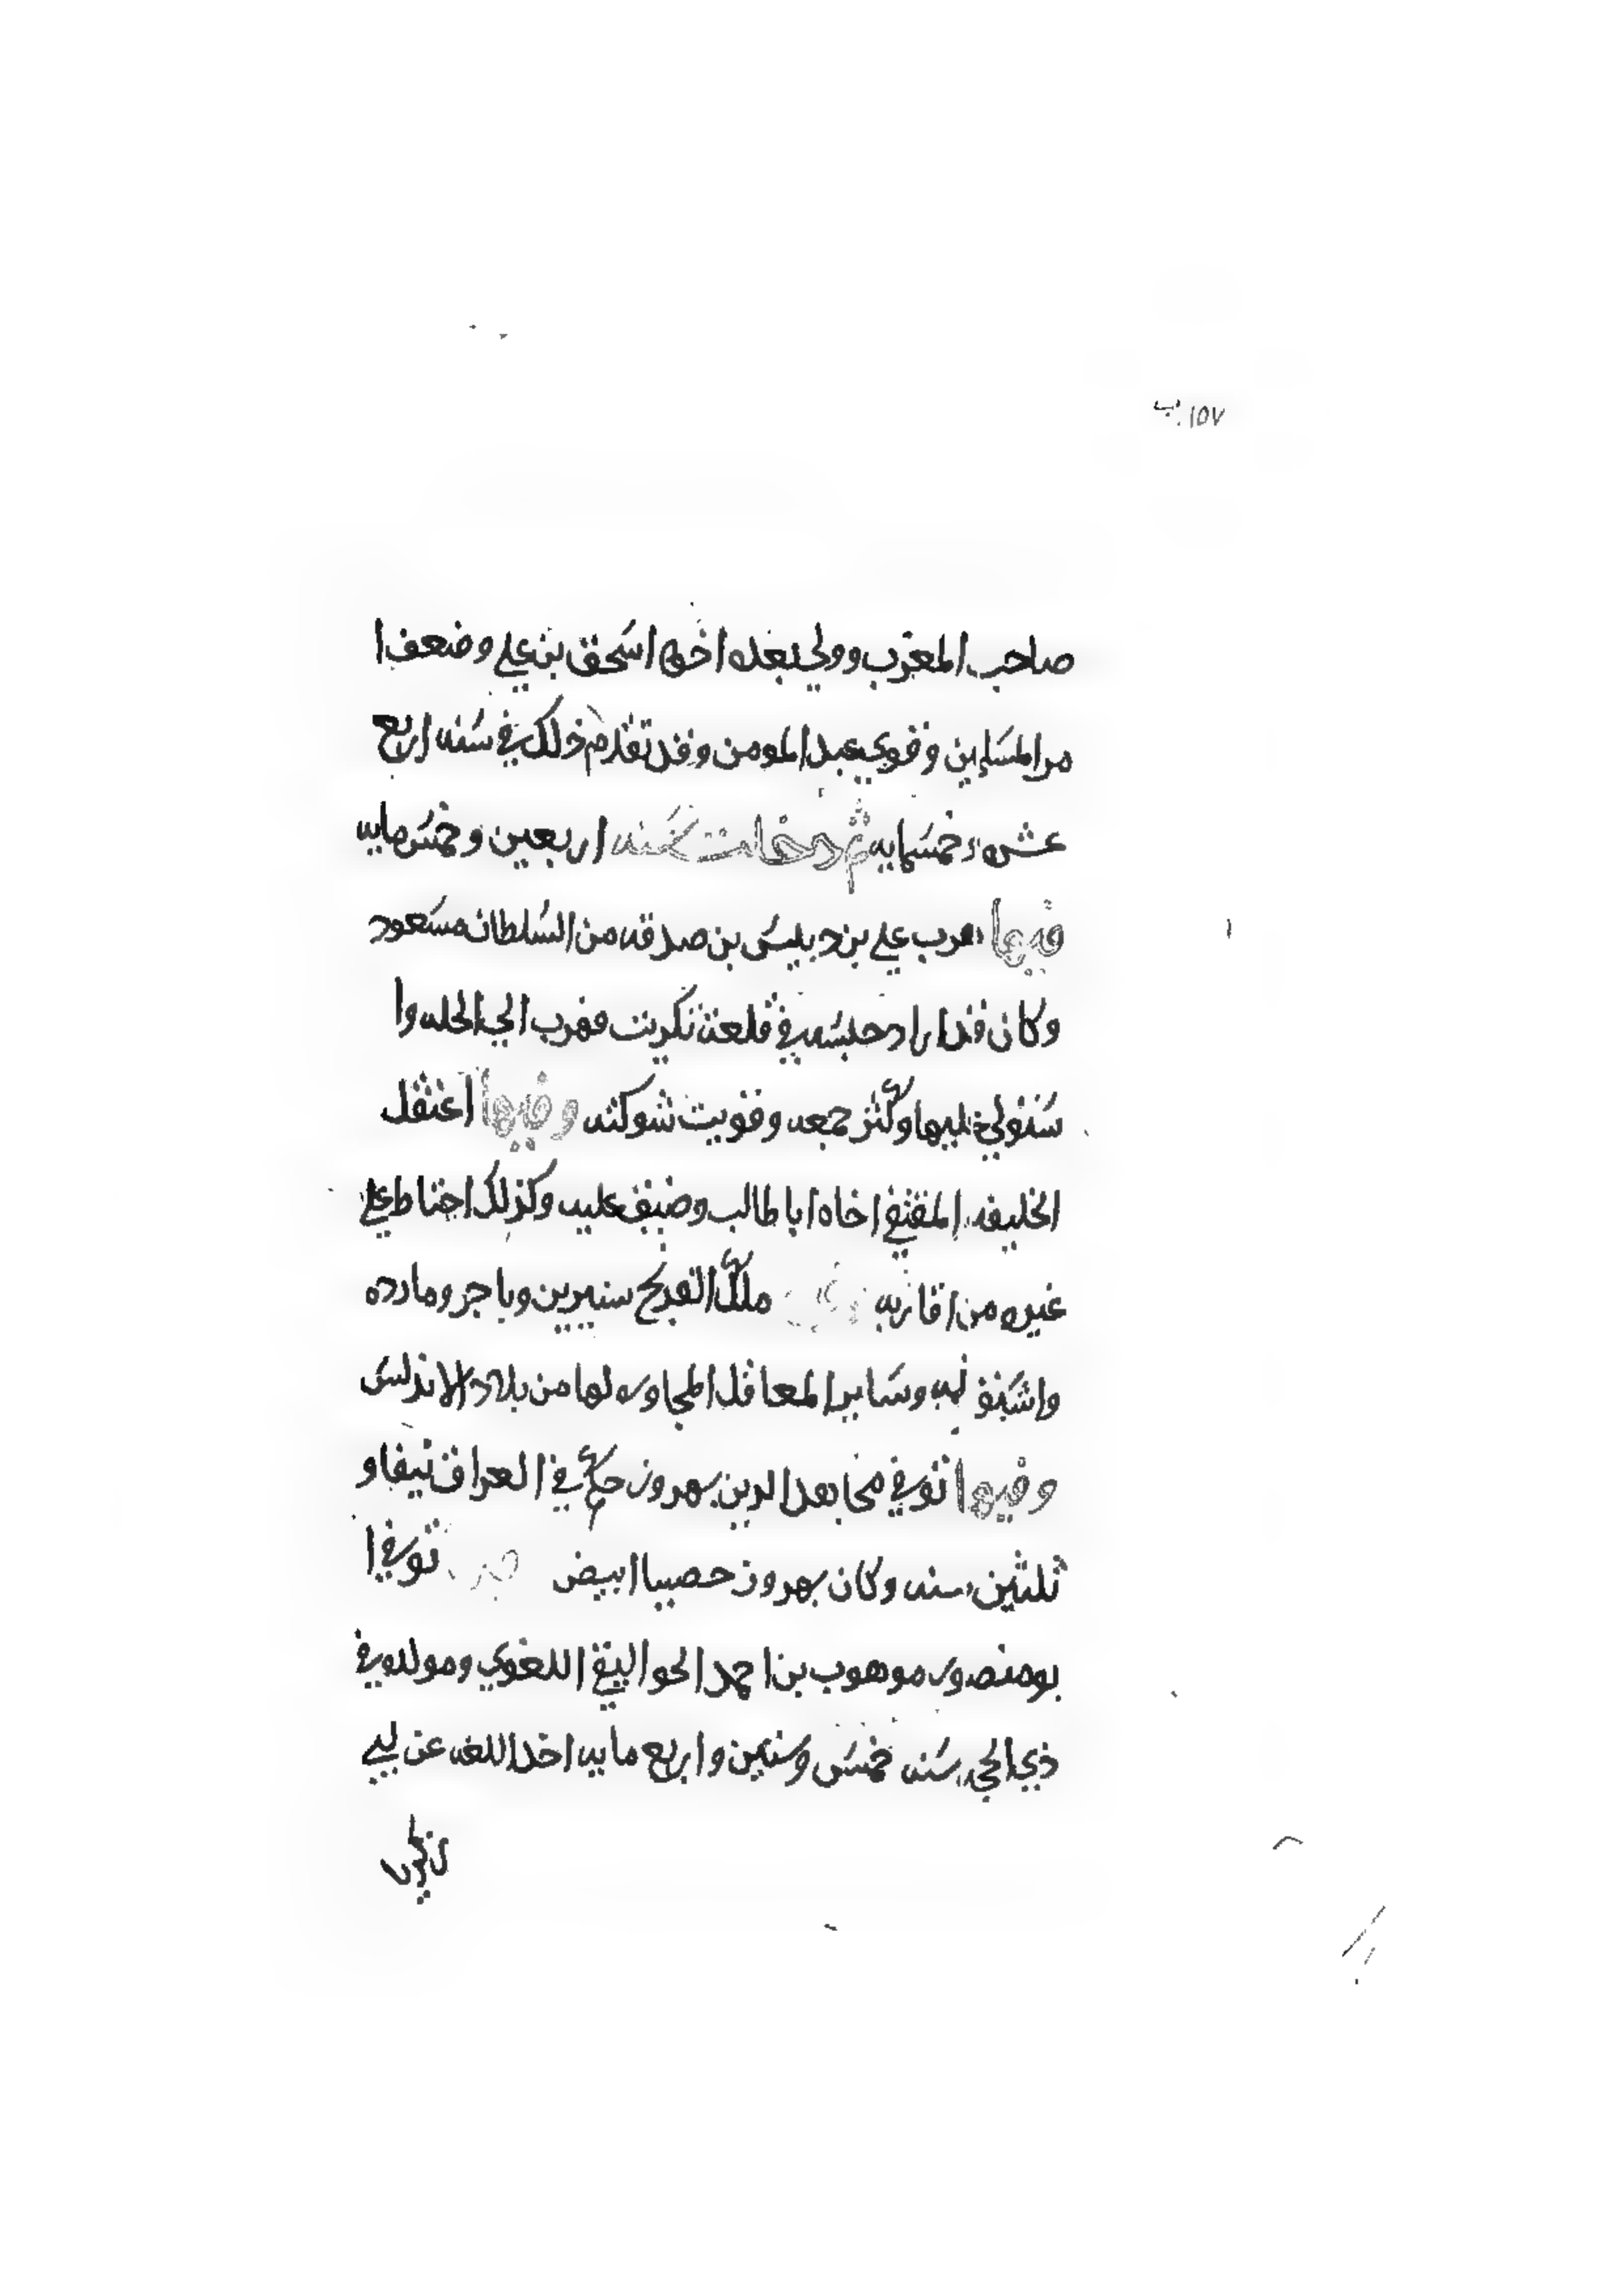 ١٥٧.ب
صاحب المغرب وولي بعده اخوه اسحق بن علي وضعف ا
مر المسلمين وقوي عبد المومن وقد تقدم ذلك في سنه اربع
عشره وخمسمايه ثم دخلت سنه اربعين وخمس مايه
فيها هرب علي بن دبيس بن صدقه من السلطان مسعود
وكان قد اراد حبسه في قلعة تكريت فهرب الي الحله وا
ستولي عليها وكثر جمعه وقويت شوكته وفيها اعتقل
الخليفه المقتفي اخاه ابا طالب وضيق عليه وكذلك احتاط علي
غيره من اقاربه ملك الفرنج سنيرين وباجر ومارده
واشبونه وساير المعاقل المجاوره لها من بلاد الاندلس
وفيها توفي مجاهد الدين بهروز حكم في العراق نيفا و
ثلثين سنه وكان بهروز خصيا ابيض توفي ا
بو منصور موهوب بن احمد الجواليقي اللغوي ومولده في
ذي الحجه سنه خمس وستين واربع مايه اخذ اللغه عن ابي
زكريا